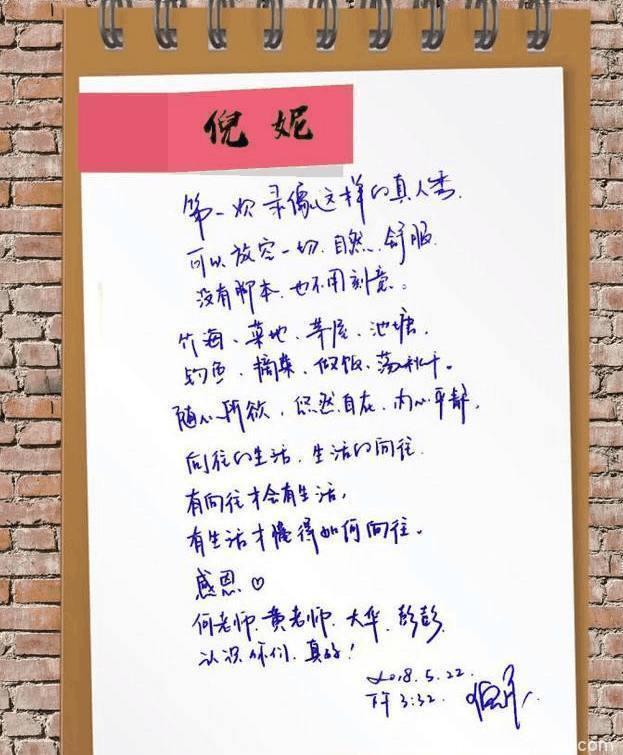 倪妮
第一次录像这样的真人秀.
可以放空一切.自然.舒服.
没有脚本.也不用刻意。
竹海、菜地、茅屋、池塘.
钓鱼、摘菜、做饭、荡秋千。
随心所欲，悠然自在，内心平静.
向往的生活.生活的向往.
有向往才会有生活，
有生活才懂得如何向往。
感恩♡
何老师.黄老师、大华.彭彭.
认识你们.真好！
2018.5.22
下午3:32
com